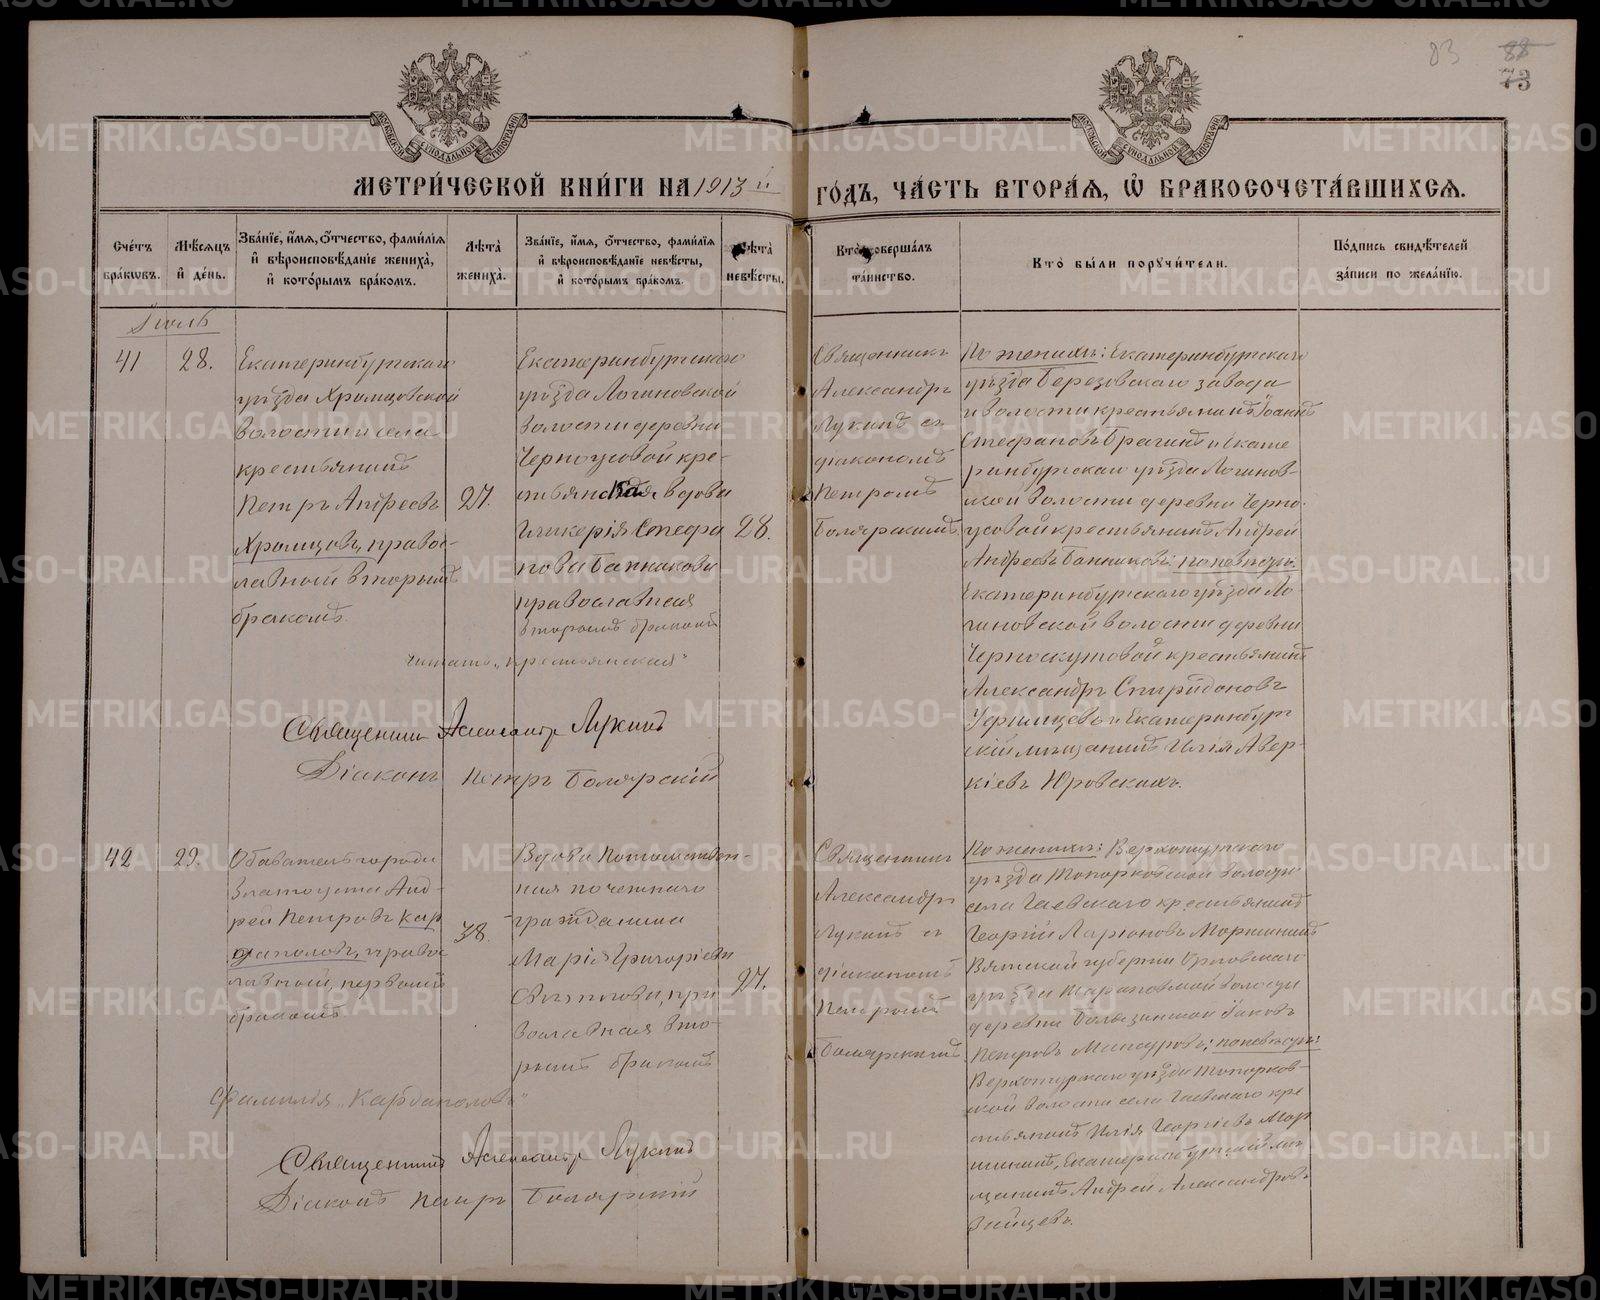 83
88
73
МОСКОВСКОЙ СУНОДАЛЬНОЙ ТИПОГРАФІИ
МОСКОВСКОЙ СУНОДАЛЬНОЙ ТИПОГРАФІИ
МЕТРИ́ЧЕСКОЙ КНИ́ГИ НА 1913 й
ГО́ДЪ, ЧА́СТЬ ВТОРА́Я, Ѡ БРАКОСОЧЕТА́ВШИХСЯ.
Сче́тъ бра́кѡвъ.
Мѣ́сяцъ й де́нь.
Зва́нїе, и́мя, о́тчество, фами́лїя й вѣроисповѣ́данїе жениха̀, й кото́рымъ бра́комъ.
Лѣ́та жениха̀.
Зва́нїе, и́мя, о́тчество, фами́лїя й вѣроисповѣ́данїе невѣ́сты, й кото́рымъ бра́комъ.
Лѣ́та невѣ́сты.
Кто̀ соверша́лъ та́инство.
Кто̀ бы́ли поручи́тели.
По́дпись свидѣ́телей за́писи по жела́нїю.
Іюль
41
28.
Екатеринбургскаго
уѣзда Храмцовской
волости и села
крестьянинъ
Петръ Андреевъ
Храмцовъ, правос-
лавной вторымъ
бракомъ.
27.
Екатеринбургскаго
уѣзда Логиновской
волости деревни
Черноусовой кре-
стьянская вдова
Гликерія Стефа
нова Банникова
православная
вторымъ бракомъ
28.
Священникъ
Александръ
Лукинъ съ
діакономъ
Петромъ
Болярскимъ
По женихѣ: Екатеринбургскаго
уѣзда Березовскаго завода
и волости крестьянинъ Іоаннъ
Стефановъ Брагинъ и Екате
ринбургскаго уѣзда Логинов-
ской волости деревни Черно-
усовой крестьянинъ Андрей
Андреевъ Банниковъ; по невѣстѣ:
Екатеринбургскаго уѣзда Ло-
гиновской волости деревни
Черноскутовой крестьянинъ
Александръ Спиридоновъ
и Екатеринбург
скій мѣщанинъ Илія Авер-
кіевъ Юровскихъ.
Читать „крестьянская"
Священникъ Александръ Лукинъ
Діаконъ Петръ Болярскій
42
29.
Обыватель города
Златоуста Анд-
рей Петровъ Кар
даполовъ, правос
лавной, первымъ
бракомъ
38.
Вдова Потомствен-
ная почетнаго
гражданина
Марія Григоріева
пра
вославная вто-
рымъ бракомъ
27.
Священникъ
Александръ
Лукинъ съ
діакономъ
Петромъ
Болярскимъ
По женихѣ: Верхотурскаго
уѣзда Топорковской волости
села Гаевскаго крестьянинъ
Георгій Ларіоновъ Моршининъ
Вятской губерніи Орловскаго
уѣзда волости
деревни Іаковъ
Петровъ; по невѣстѣ:
Верхотурскаго уѣзда Топорков-
ской волости села Гаевскаго кре
стьянинъ Илія Георгіевъ Мор
шининъ, Екатеринбургскій мѣ
щанинъ Андрей Александровъ
Зайцевъ.
Фамилія „Кардаполовъ"
Священникъ Александръ Лукинъ
Діаконъ Петръ Болярскій
METRIKI.GASO-URAL.RU